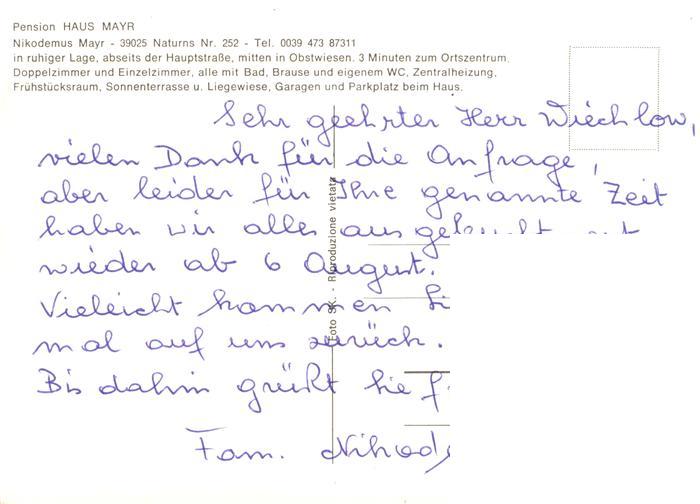 Pension HAUS MAYR
Nikodemus Mayr - 39025 Naturns Nr. 252 - Tel. 0039 473 87311
in ruhiger Lage, abseits der Hauptstraße, mitten in Obstwiesen. 3 Minuten zum Ortszentrum.
Doppelzimmer und Einzelzimmer, alle mit Bad, Brause und eigenem WC, Zentralheizung,
Frühstücksraum, Sonnenterrasse u. Liegewiese, Garagen und Parkplatz beim Haus.
Sehr geehrter Herr Wiechlow,
vielen Dank für die Anfrage,
aber leider für Ihre genannte Zeit
haben wir alles
wieder ab 6 August.
Vieleicht kommen
mal auf uns zurück.
Bis dahin grüßt Sie
Fam.
Foto SK. - Riproduzione vietata